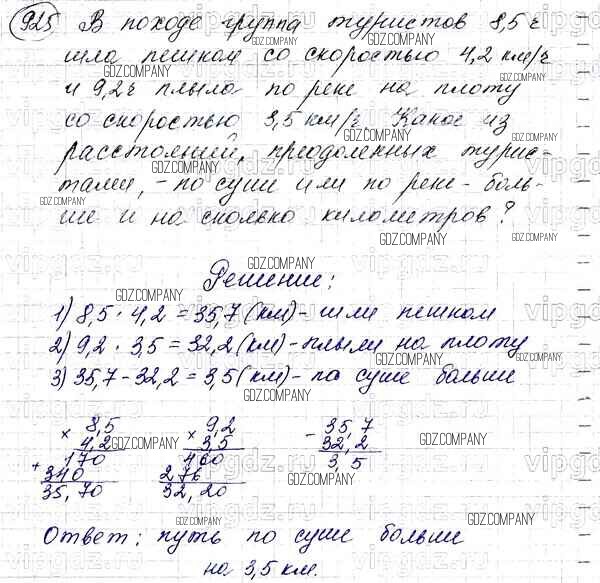 925 В походе группа туристов 8,5 ч
шла пешком со скоростью 4,2 км/ч
и 9,2 ч плыла по реке на плоту
со скоростью 3,5 км/ч. Какое из
расстояний, преодоленных турис-
тами, - по суше или по реке - боль-
ше и на сколько километров?
Решение:
1) 8,5 · 4,2 = 35,7 (км) - шли пешком
2) 9,2 · 3,5 = 32,2 (км) - плыли на плоту
3) 35,7 - 32,2 = 3,5 (км) - по суше больше
× 8,5
4,2
170
+ 340
35,70
× 9,2
3,5
460
276
32,20
- 35,7
32,2
3,5
Ответ: путь по суше больше
на 3,5 км.
GDZ.COMPANY
vipgdz.ru